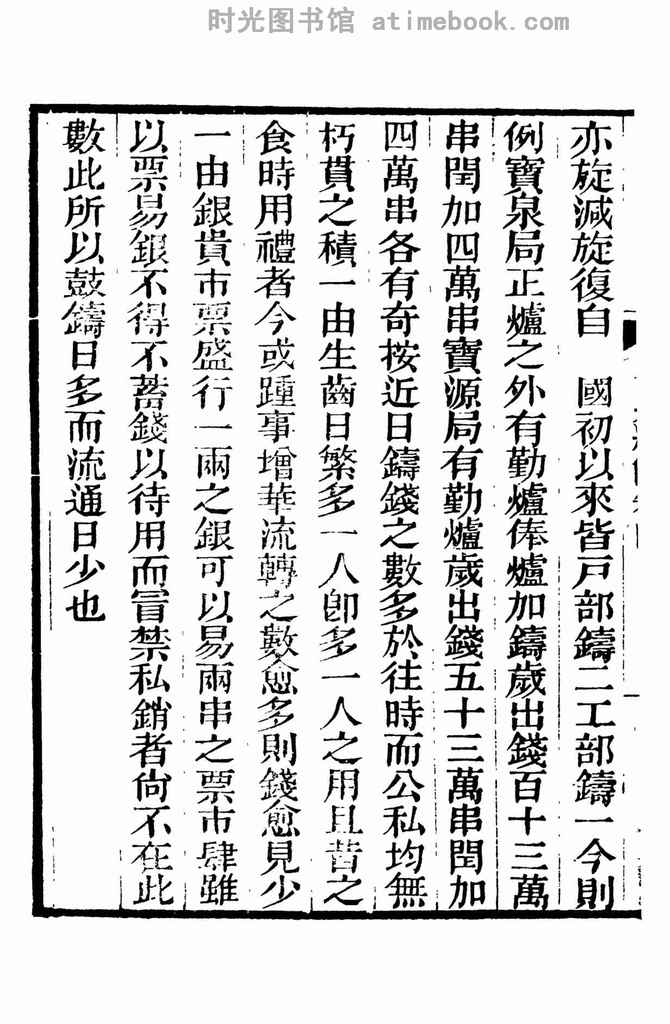 时光图书馆 atimebook.com
亦旋減旋復自　國初以來皆戸部鑄二工部鑄一今則
例寶泉局正爐之外有勤爐俸爐加鑄歲出錢百十三萬
串閏加四萬串寶源局有勤爐歲出錢五十三萬串閏加
四萬串各有奇按近日鑄錢之數多於往時而公私均無
朽貫之積一由生齒日繁多一人卽多一人之用且昔之
食時用禮者今或踵事增華流轉之數愈多則錢愈見少
一由銀貴市票盛行一兩之銀可以易兩串之票市肆雖
以票易銀不得不蓄錢以待用而冒禁私銷者尙不在此
數此所以鼓鑄日多而流通日少也